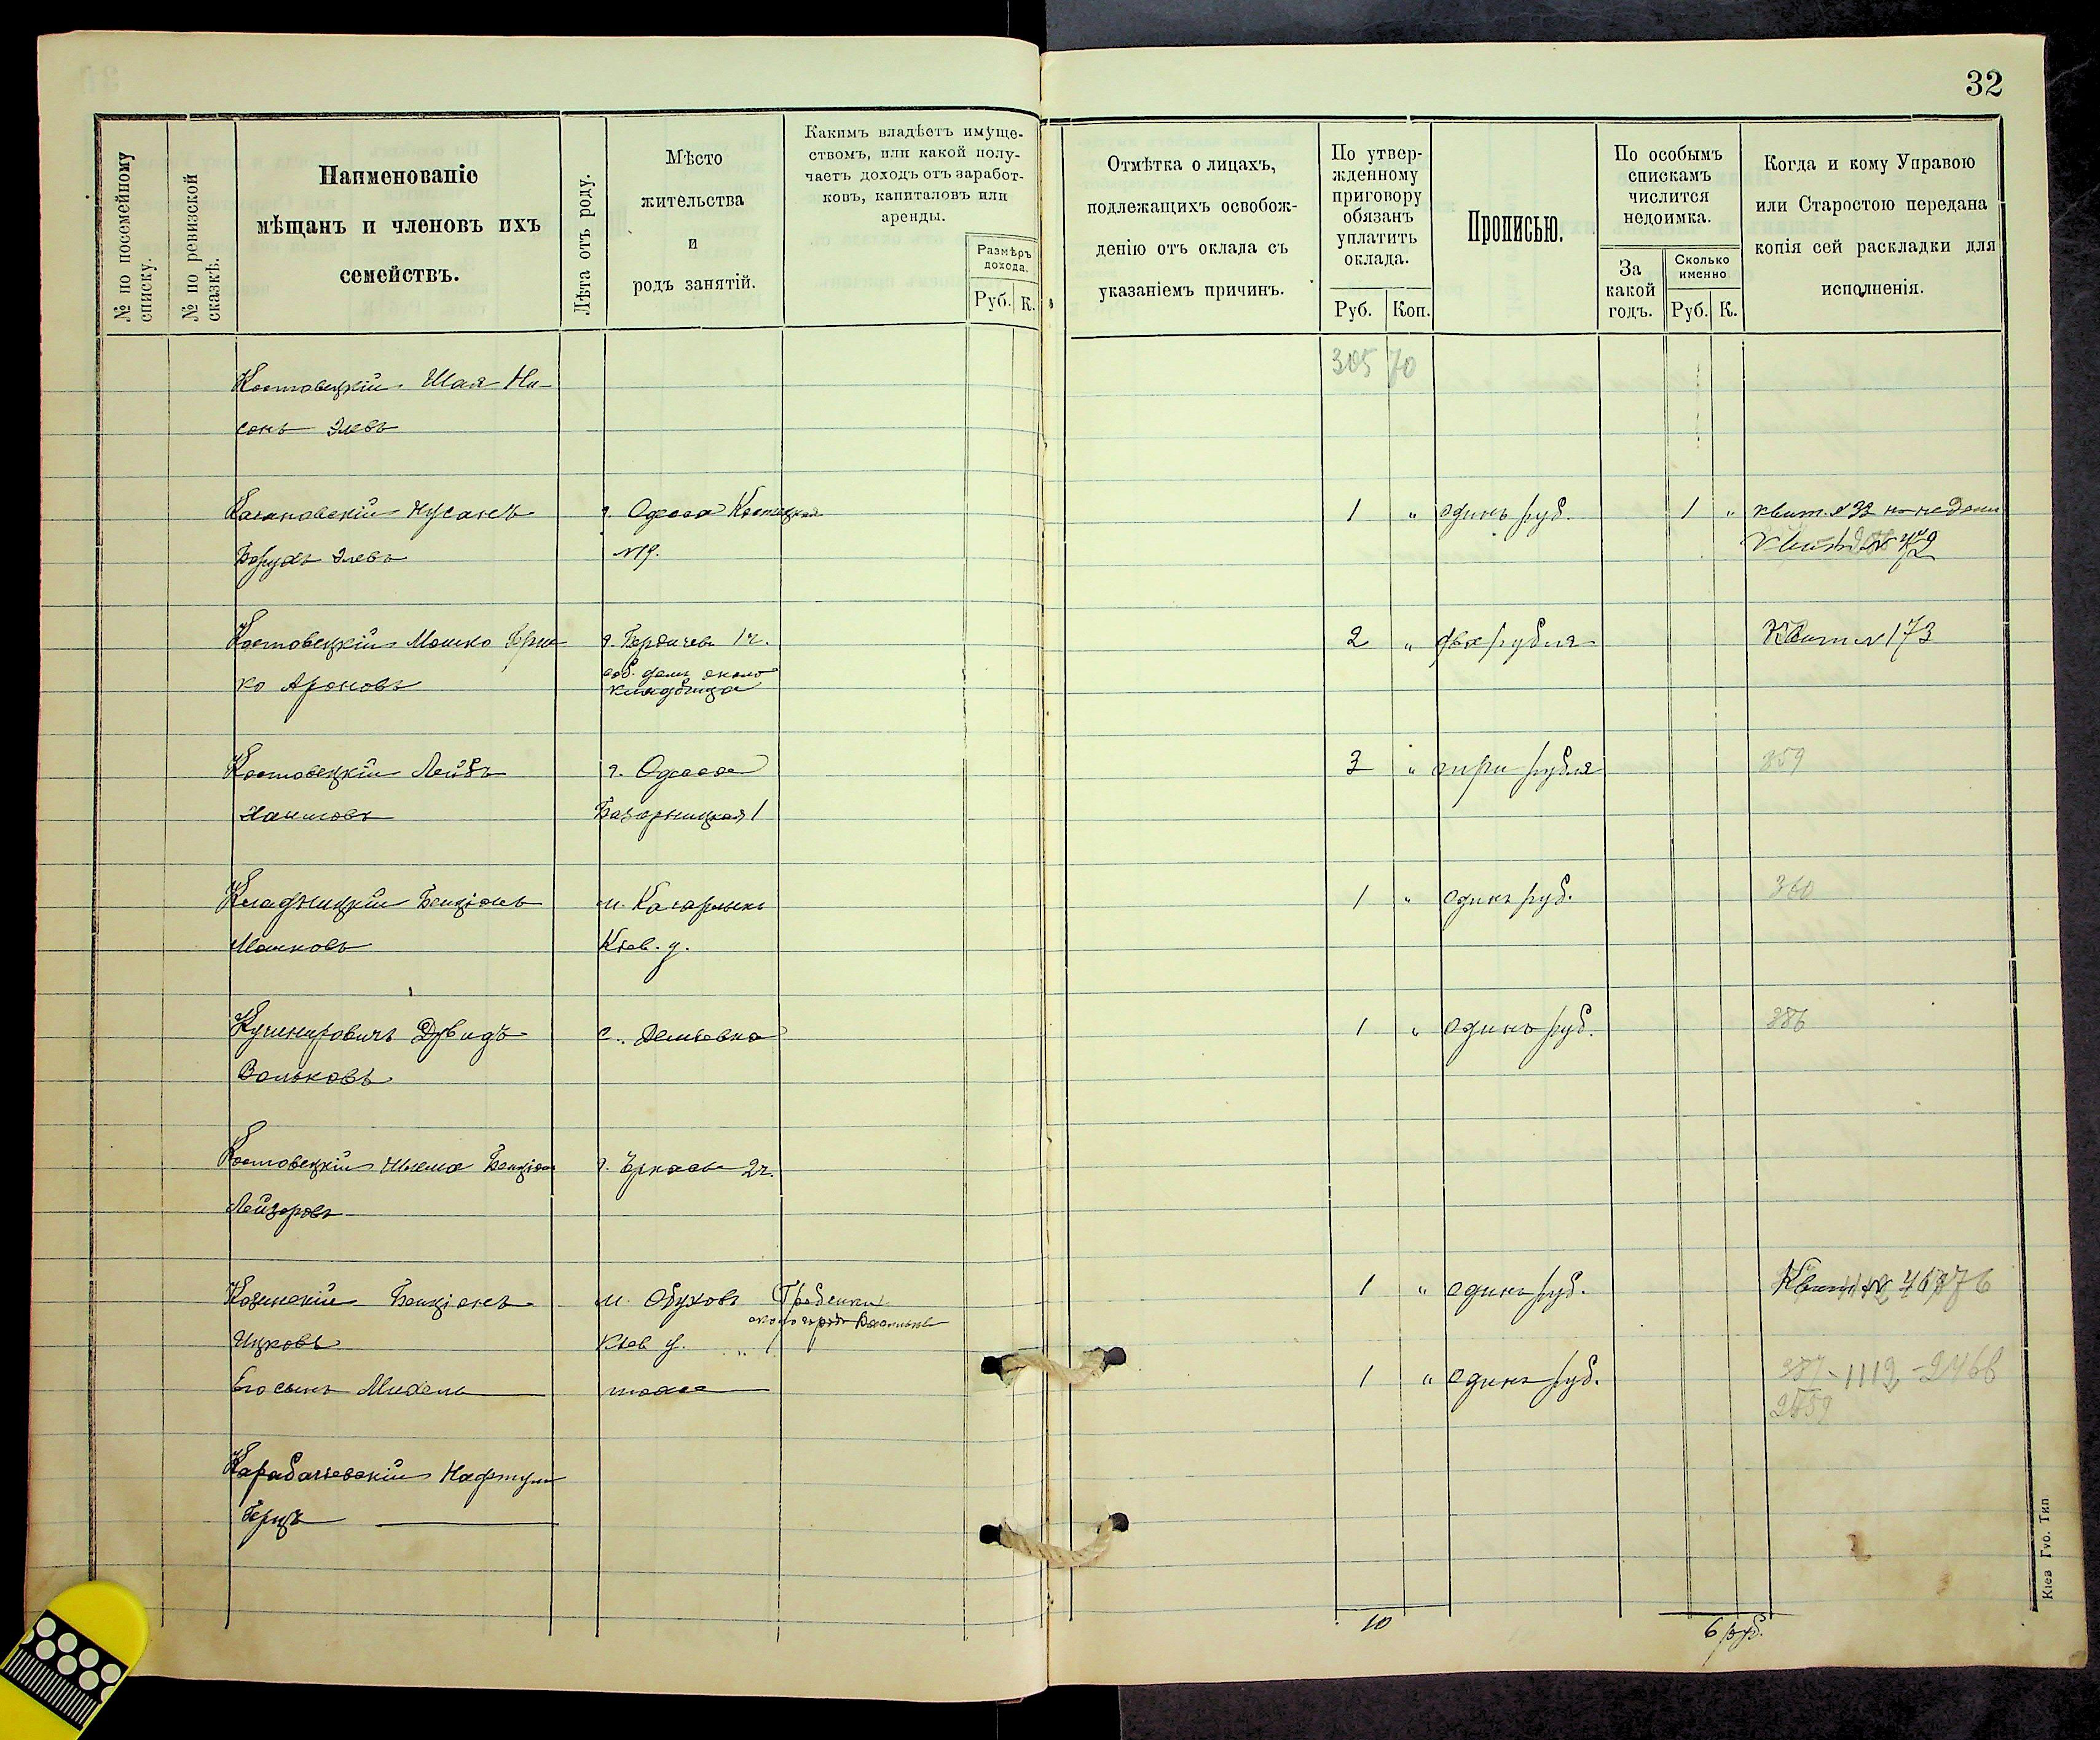 32
№ по посемейному списку.
№ по ревизской сказкѣ.
Наименованіе
мѣщанъ и членовъ ихъ
семействъ.
Лѣта отъ роду.
Мѣсто
жительства
и
родъ занятій.
Какимъ владѣетъ имуще-
ствомъ, или какой полу-
чаетъ доходъ отъ заработ-
ковъ, капиталовъ или
аренды.
Размѣръ
дохода.
Руб. К.
Отмѣтка о лицахъ,
подлежащихъ освобож-
денію отъ оклада съ
указаніемъ причинъ.
По утвер-
жденному
приговору
обязанъ
уплатить
оклада.
Руб. Коп.
Прописью.
По особымъ
спискамъ
числится
недоимка.
За
какой
годъ.
Сколько
именно
Руб. К.
Когда и кому Управою
или Старостою передана
копія сей раскладки для
исполненія.
305 70
Костовецкій Шая Ни-
сонъ Элевъ
Нусанъ г. Одесса 1 " одинъ руб. 1 " квит. № 32
Борухъ Элевъ №9.
Костовецкій Мошко г. Бердичевъ 1 ч. 2 " два рубля Квит № 173
ко Ароновъ соб. домъ около
кладбища
Костовецкій Лейбъ г. Одесса 3 " три рубля 359
Хаимовъ 1
Кладницкій Бенціонъ м. Кагарлыкъ 1 " одинъ руб. 360
Мошковъ Кіев. у.
Кушнировичъ Дувидъ с. Деміевка 1 " одинъ руб. 386
Вольковъ
Костовецкій Шлема Бенціон г. Черкасы 2 ч.
Лейзоровъ
Козинскій Бенціонъ м. Обуховъ Гребенки 1 " одинъ руб. Квит №
около города Василькова
Ицковъ Кіев у.
Его сынъ Михель тоже 1 " одинъ руб. 387-1112-2468
2459
Карабачевскій Нафтула
Берцъ
10
6 руб.
Кіев Губ. Тип.